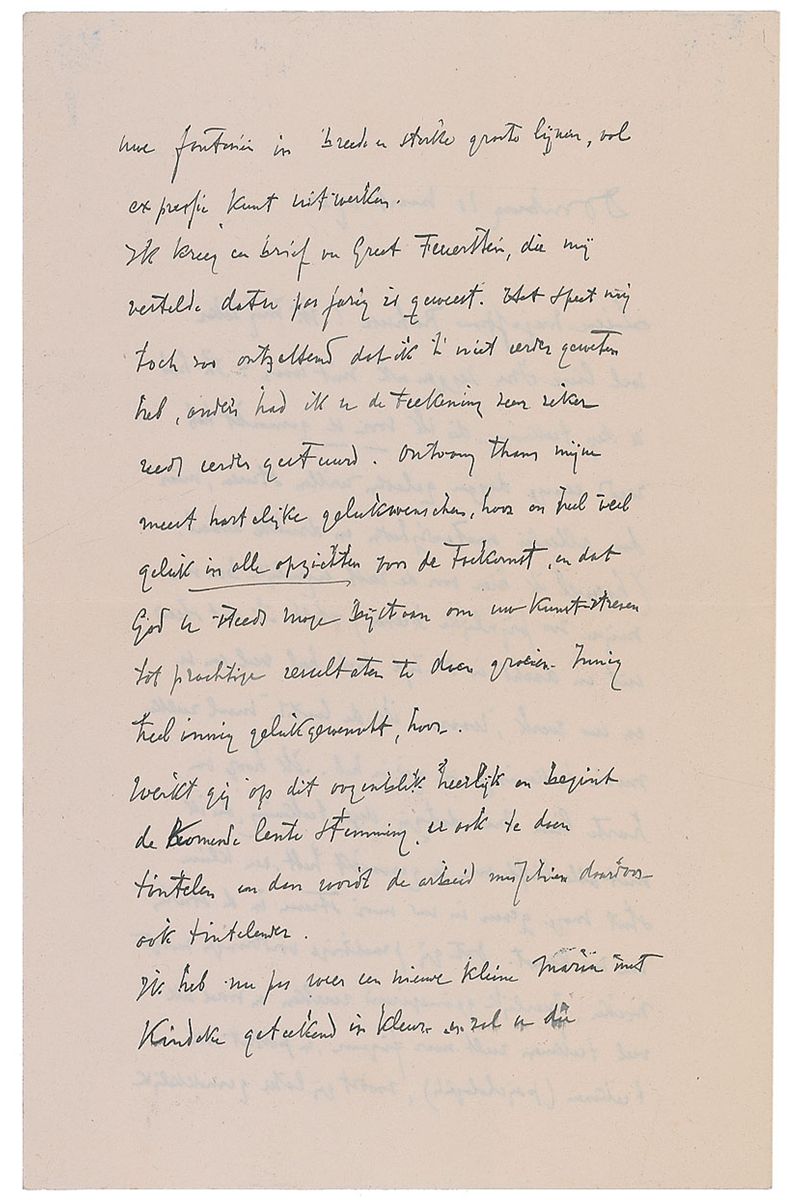 uwe fantasie in breede en sterke groote lijnen, vol
expressie kunt uitwerken.
Ik kreeg een brief van Greet Feuerstein, die mij
vertelde dat u pas jarig is geweest. Het speet mij
toch zoo ontzettend dat ik 't niet eerder geweten
heb, anders had ik u de teekening zeer zeker
reeds eerder gestuurd. Ontvang thans mijne
meest hartelijke gelukwenschen, hoor en heel veel
geluk in alle opzichten voor de toekomst, en dat
God u steeds moge bijstaan om uw kunst-streven
tot prachtige resultaten te doen groeien. Innig
heel innig gelukgewenscht, hoor.
Werkt gij op dit oogenblik heerlijk en begint
de komende lente stemming er ook te doen
tintelen en dan wordt de arbeid misschien daardoor
ook tintelender.
Ik heb nu pas weer een nieuwe kleine Maria met
Kindeke geteekend in kleur en zal u die